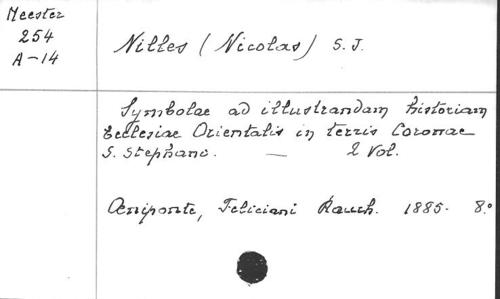 Meester
254
A-14
Nilles (Nicolas) S. J.
Symbolae ad illustrandam historiam
Ecclesiae Orientalis in terris Coronae
S. Stephani. — 2 Vol.
Oeniponte, Feliciani Rauch. 1885. 8.°